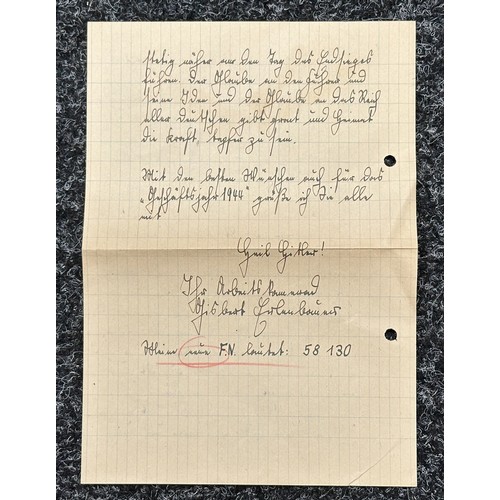 stetig näher vor den Tag des Endsieges
führen. Der Glaube an den Führer und
seine Idee und der Glaube an das Reich
aller Deutschen gibt Front und Heimat
die Kraft, tapfer zu sein.
Mit den besten Wünschen auch für das
„Geschäftsjahr 1944“ grüße ich Sie alle
mit
Heil Hitler!
Ihr Arbeitskamerad
Gisbert Erlenbauer
Meine neue F.N. lautet: 58 130